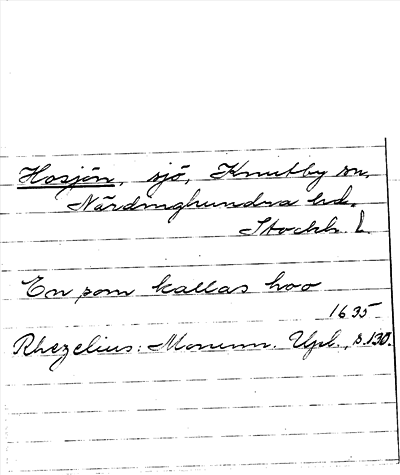 Hosjön, sjö, Knutby sn.
Närdinghundra hd.
Stockh. L
En som kallas hoo
1635
Rhezelius: Monum. Upl., s.130.